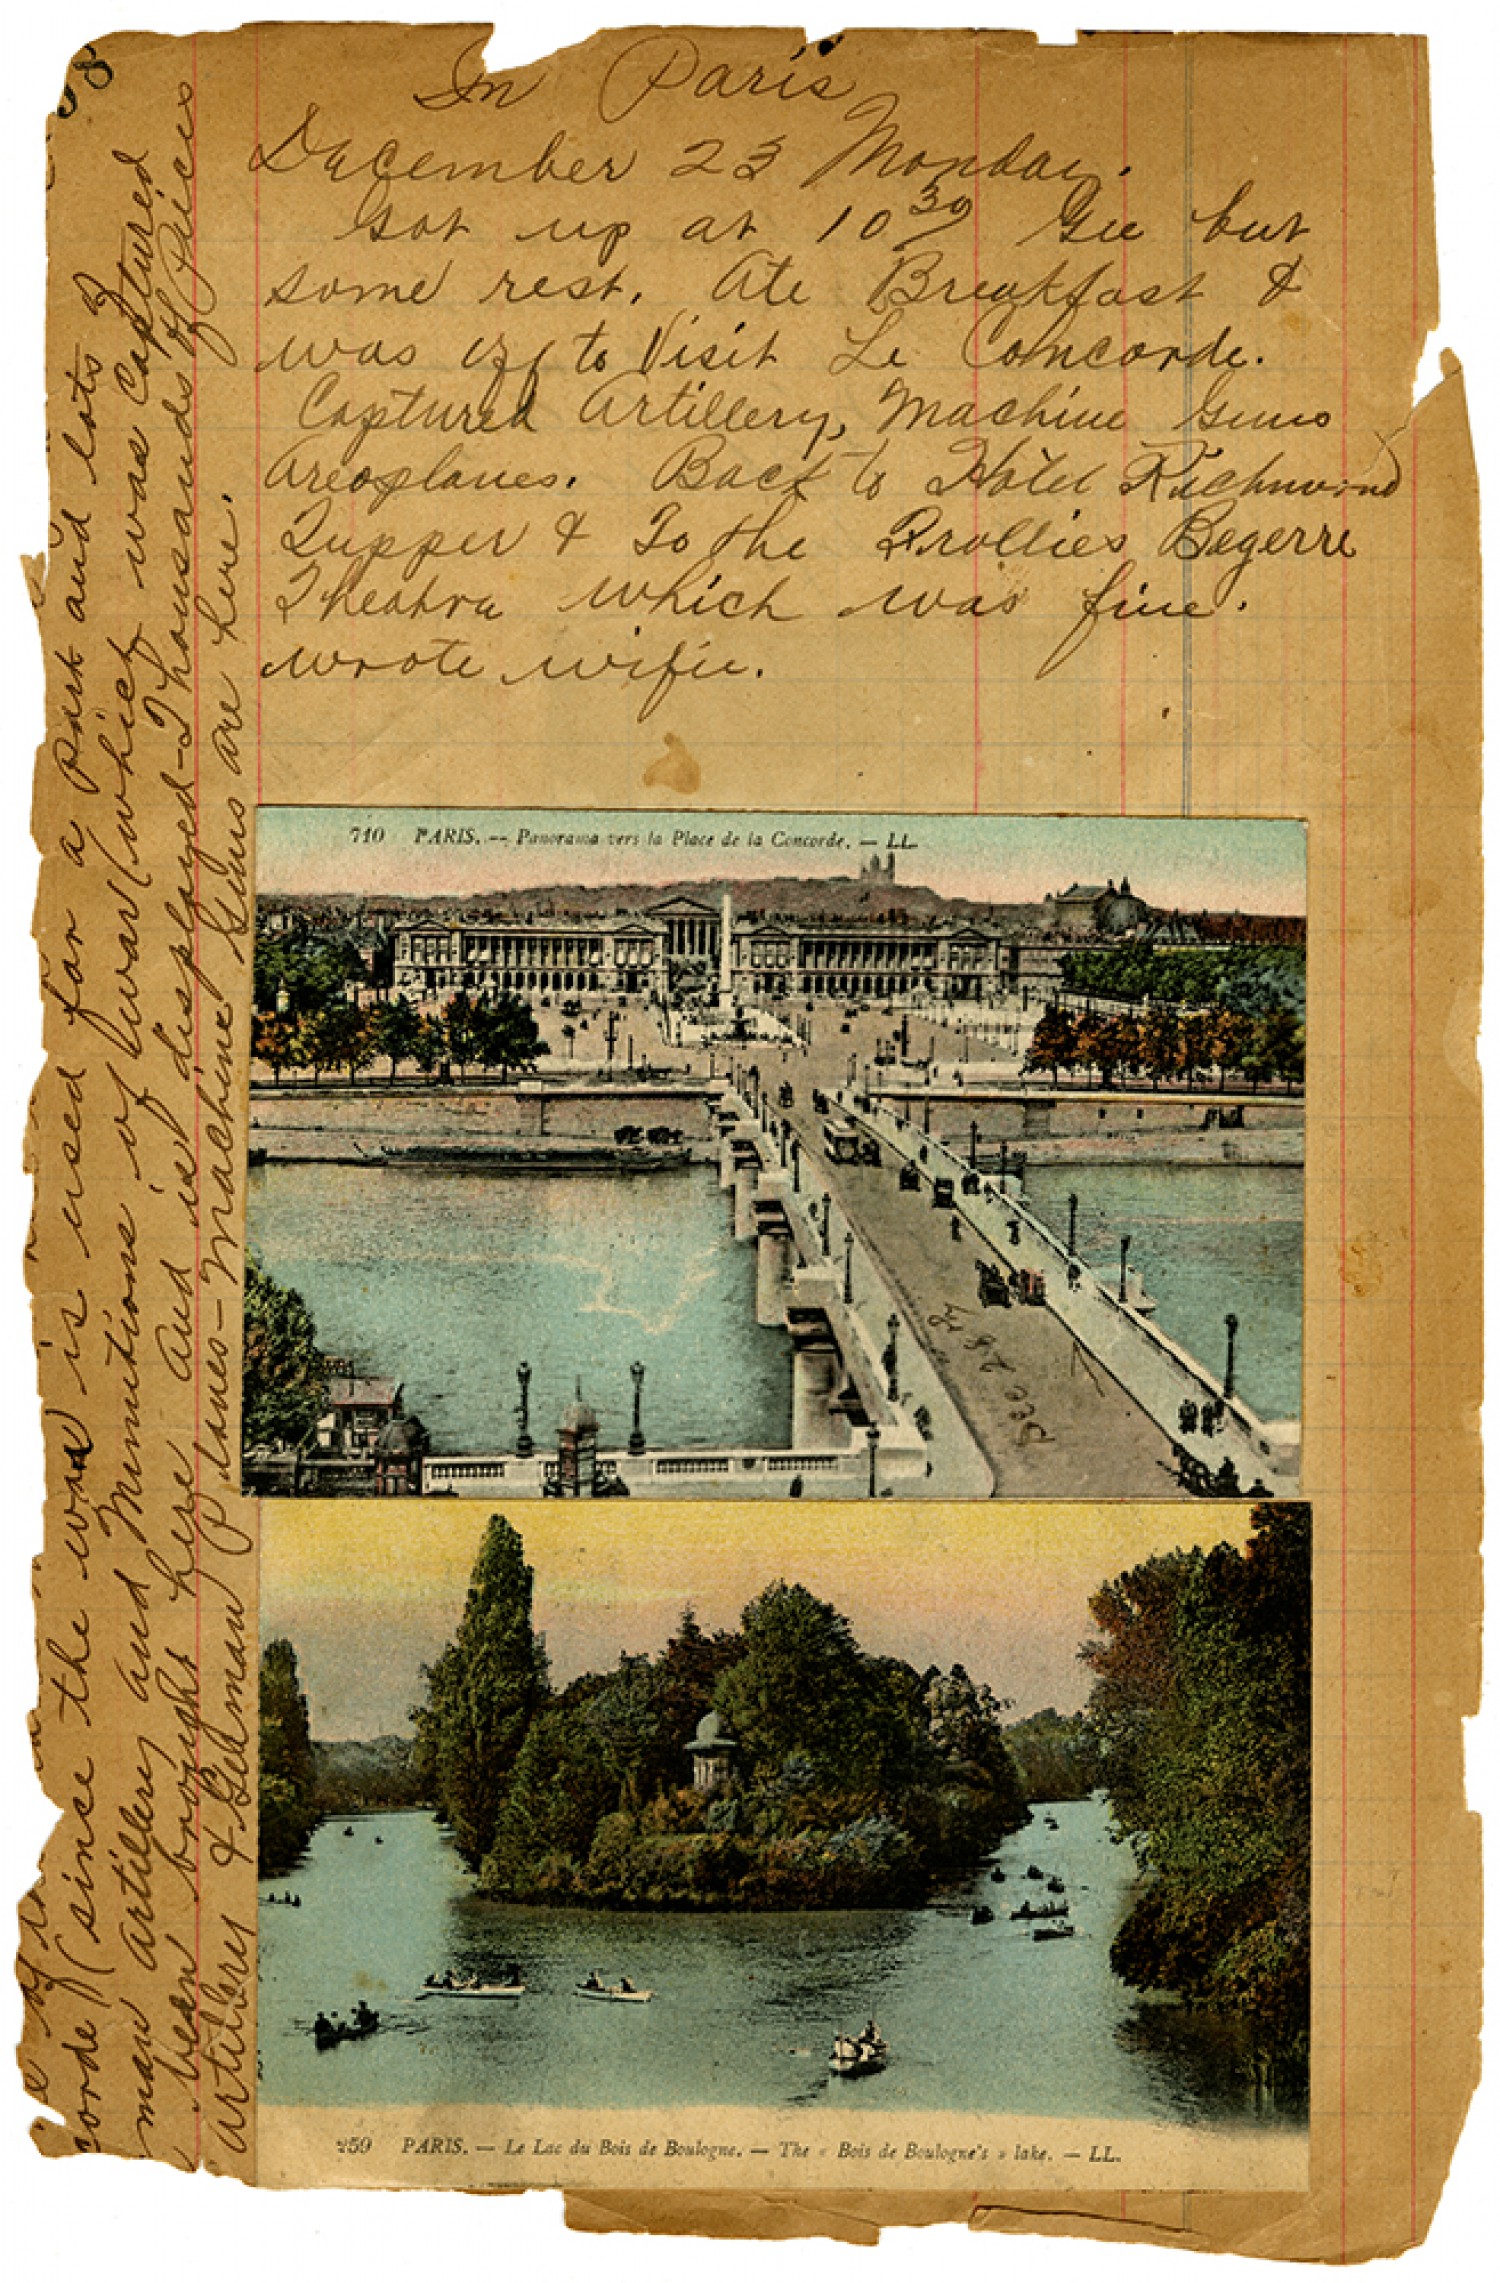 58
In Paris
December 23 Monday.
Got up at 10 30 Gee but
some rest. Ate Breakfast &
was off to Visit Le Concorde.
Captured Artillery, Machine Guns
Areoplanes. Back to Hotel Richmond
Supper & To the Begerre
Theatra which was fine.
wrote wifie.
of
corde (since the war is used for a park and lots of
man artillery and Munitions of War (which was captured
been brought here and is displayed - Thousands of Pieces
artillery & German Planes - Machine Guns are here.
710 PARIS. -- Panorama vers la Place de la Concorde. — LL.
Dec 28
259 PARIS. — Le Lac du Bois de Boulogne. — The « Bois de Boulogne's » lake. — LL.